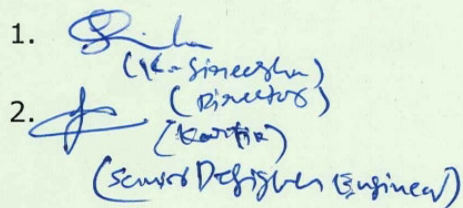 1.
(K. Sireesha)
(Director)
2.
(Kartik)
(Senior Design Engineer)